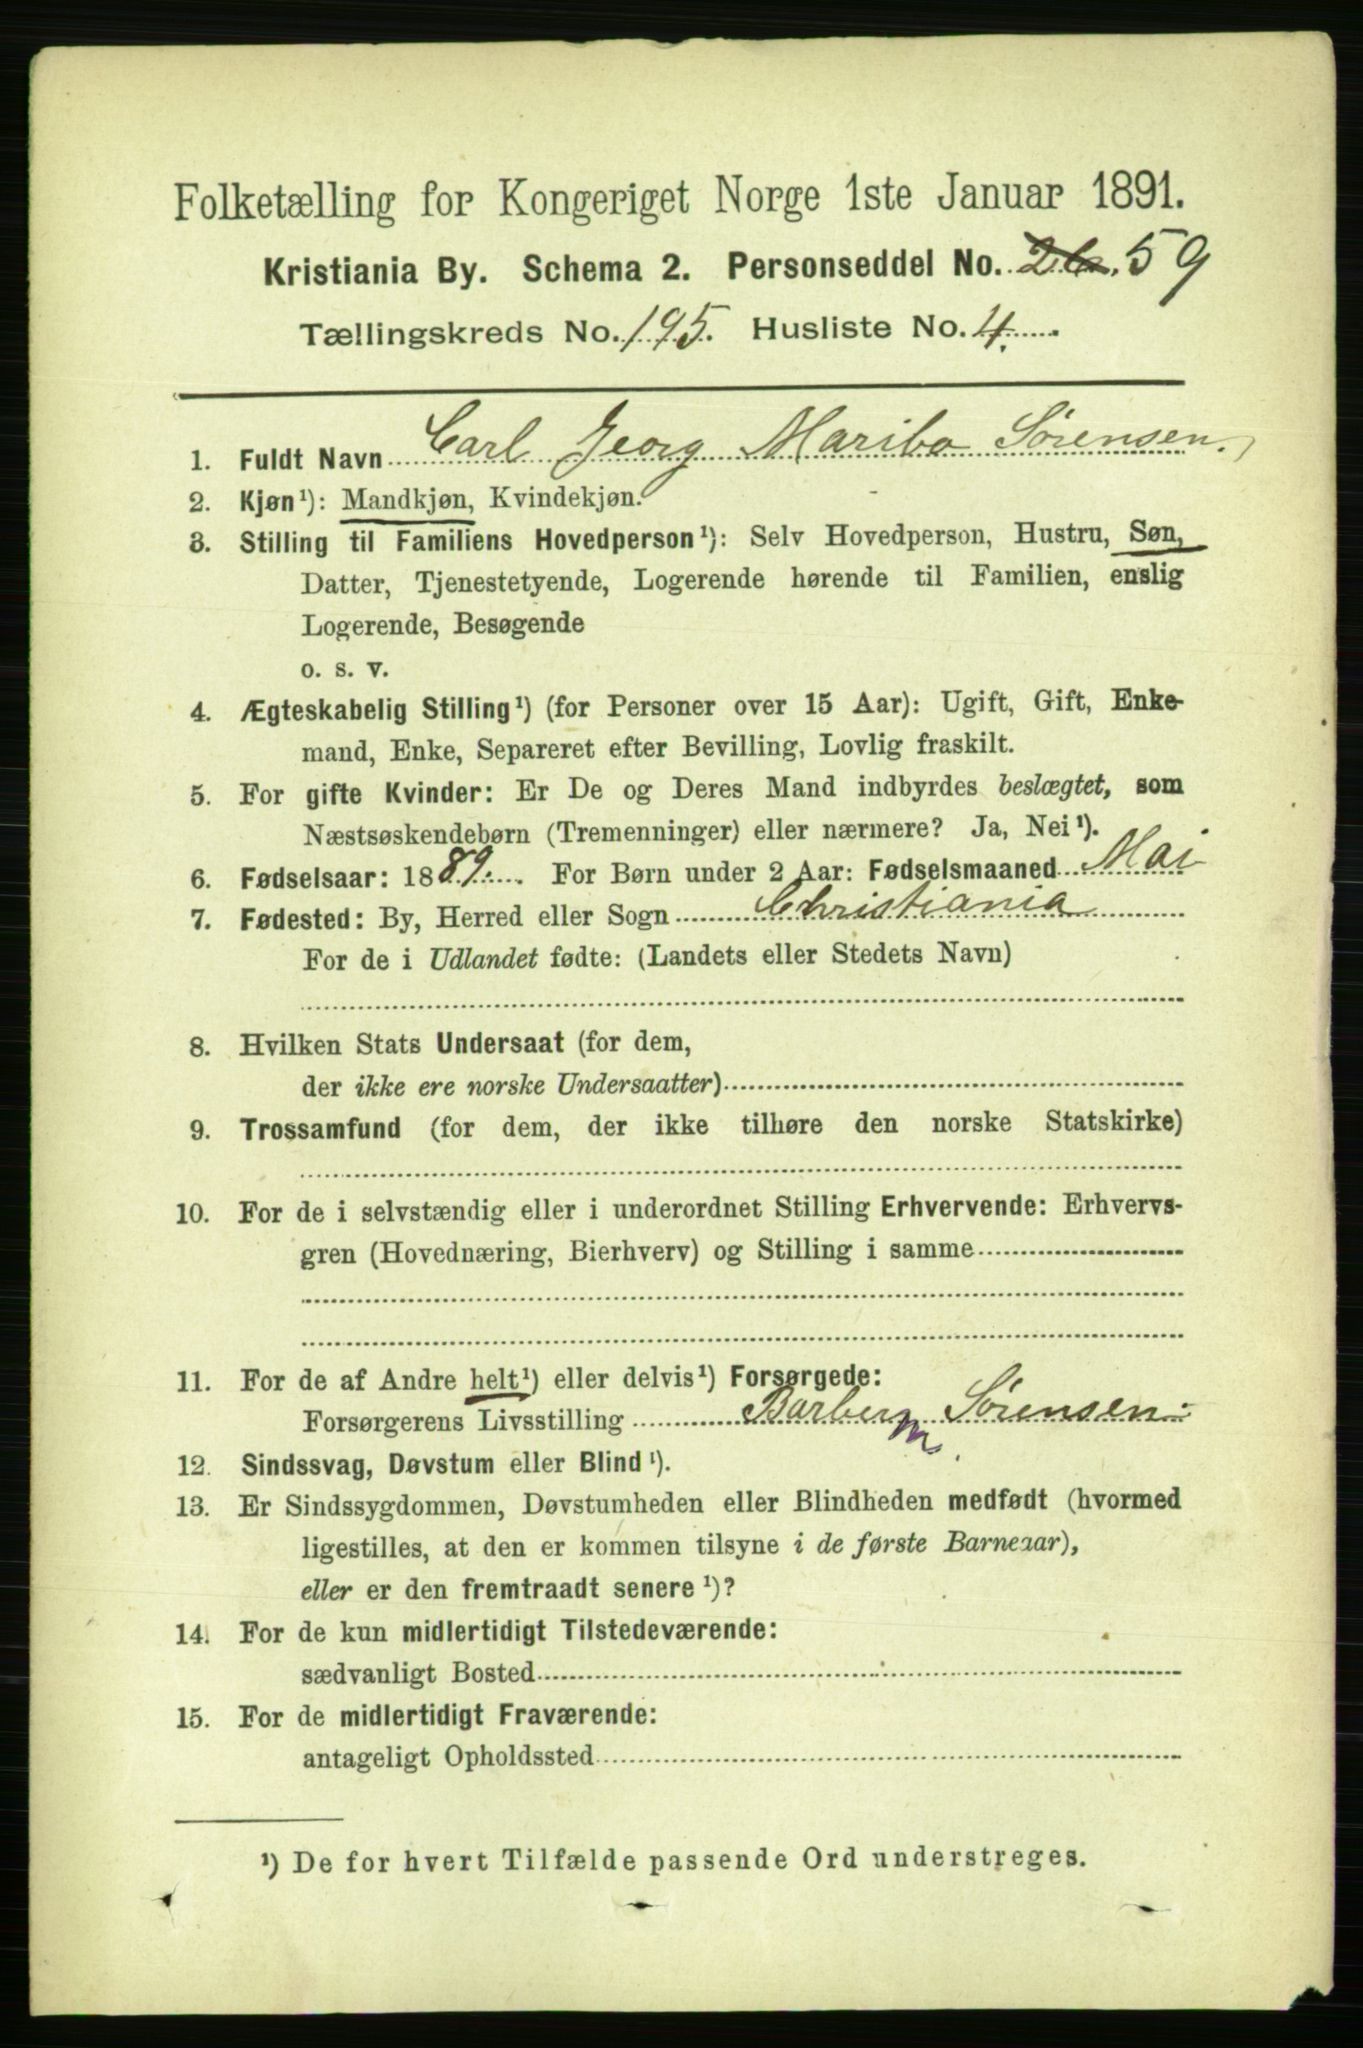 Folketælling for Kongeriget Norge 1ste Januar 1891.
Kristiania By. Schema 2. Personseddel No. 59
Tællingskreds No. 195. Husliste No. 4.
1. Fuldt Navn Carl Georg Maribo Sörensen.
2. Kjøn¹): Mandkjøn, Kvindekjøn.
3. Stilling til Familiens Hovedperson¹): Selv Hovedperson, Hustru, Søn,
Datter, Tjenestetyende, Logerende hørende til Familien, enslig
Logerende, Besøgende
o. s. v.
4. Ægteskabelig Stilling¹) (for Personer over 15 Aar): Ugift, Gift, Enke-
mand, Enke, Separeret efter Bevilling, Lovlig fraskilt.
5. For gifte Kvinder: Er De og Deres Mand indbyrdes beslægtet, som
Næstsøskendebørn (Tremenninger) eller nærmere? Ja, Nei¹).
6. Fødselsaar: 1889. For Børn under 2 Aar: Fødselsmaaned Mai
7. Fødested: By, Herred eller Sogn Christiania
For de i Udlandet fødte: (Landets eller Stedets Navn)
8. Hvilken Stats Undersaat (for dem,
der ikke ere norske Undersaatter)
9. Trossamfund (for dem, der ikke tilhøre den norske Statskirke)
10. For de i selvstændig eller i underordnet Stilling Erhvervende: Erhvervs-
gren (Hovednæring, Bierhverv) og Stilling i samme
11. For de af Andre helt¹) eller delvis¹) Forsørgede:
Forsørgerens Livsstilling Barber Sörensen.
m.
12. Sindssvag, Døvstum eller Blind¹).
13. Er Sindssygdommen, Døvstumheden eller Blindheden medfødt (hvormed
ligestilles, at den er kommen tilsyne i de første Barneaar),
eller er den fremtraadt senere¹)?
14. For de kun midlertidigt Tilstedeværende:
sædvanligt Bosted
15. For de midlertidigt Fraværende:
antageligt Opholdssted
¹) De for hvert Tilfælde passende Ord understreges.